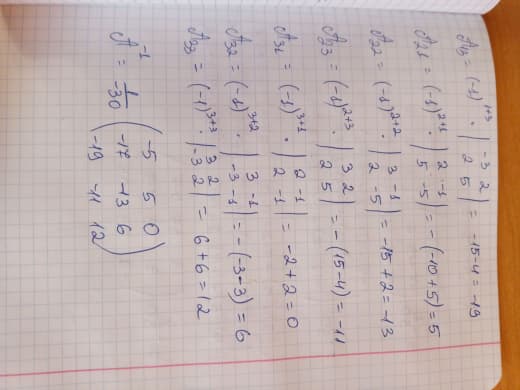 A₁₃ = (-1)¹⁺³ · |-3 2; 2 5| = -15-4 = -19
A₂₁ = (-1)²⁺¹ · |2 -1; 5 -5| = -(-10+5) = 5
A₂₂ = (-1)²⁺² · |3 -1; 2 -5| = -15+2 = -13
A₂₃ = (-1)²⁺³ · |3 2; 2 5| = -(15-4) = -11
A₃₁ = (-1)³⁺¹ · |2 -1; 2 -1| = -2+2 = 0
A₃₂ = (-1)³⁺² · |3 -1; -3 -1| = -(-3-3) = 6
A₃₃ = (-1)³⁺³ · |3 2; -3 2| = 6+6 = 12
A⁻¹ = 1/-30 (-5 5 0
-17 -13 6
-19 -11 12)